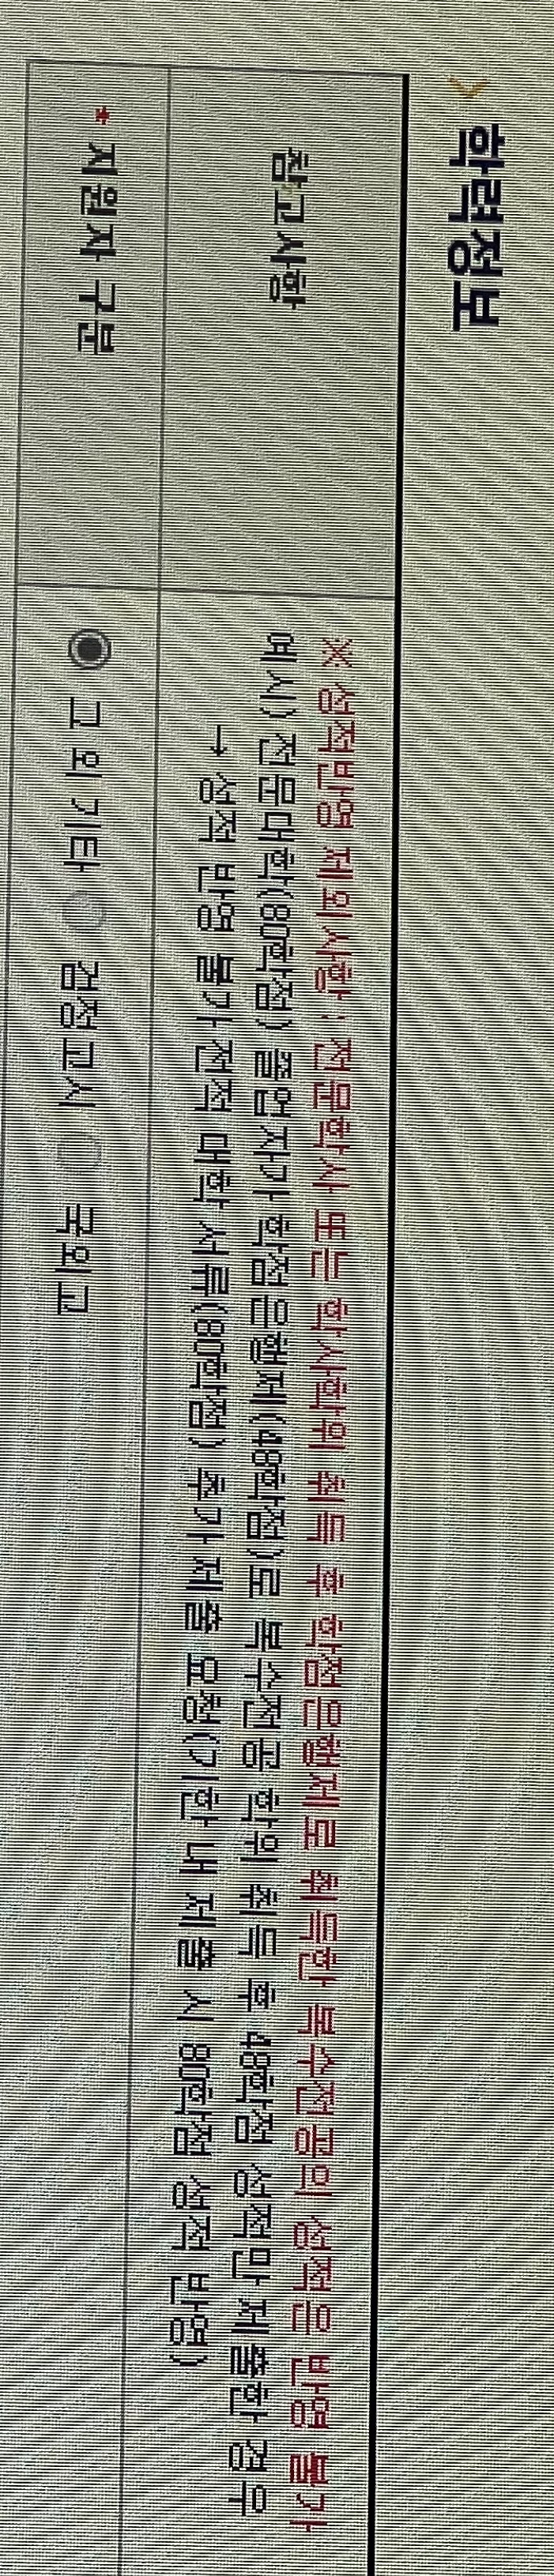 학력정보
참고사항
※ 성적반영 제외사항 : 전문학사 또는 학사학위 취득 후 학점은행제로 취득한 복수전공의 성적은 반영 불가
예시) 전문대학(80학점) 졸업자가 학점은행제(48학점)로 복수전공 학위 취득 후 48학점 성적만 제출한 경우
→ 성적 반영 불가 전적 대학 서류(80학점) 추가 제출 요청(기한 내 제출 시 80학점 성적 반영)
* 지원자 구분
그 외 기타 검정고시 국외고